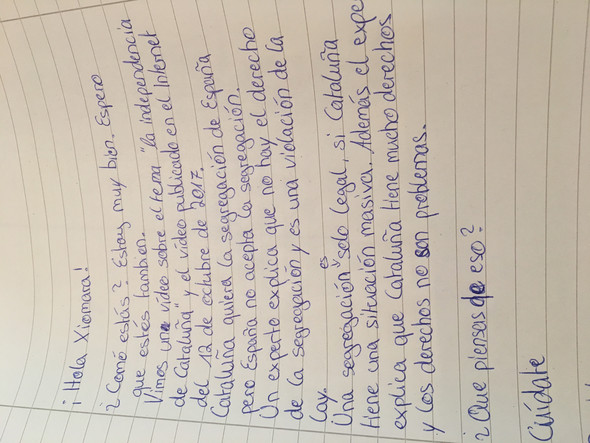 ¡Hola Xiomara!
¿Comó estás? Estoy muy bien. Espero
que estés tambien.
Vimos un video sobre el tema "la independencia
de Cataluña" y el video publicado en el Internet
del 12 de octubre de 2017.
Cataluña quiera la segregación de España
pero España no acepta la segregación.
Un experto explica que no hay el derecho
de la segregación y es una violación de la
Lay.
Una segregación es solo legal, si Cataluña
tiene una situación masiva. Además el expe
explica que Cataluña tiene mucho derechos
y los derechos no son problemas.
¿Que piensas de eso?
Cuídate